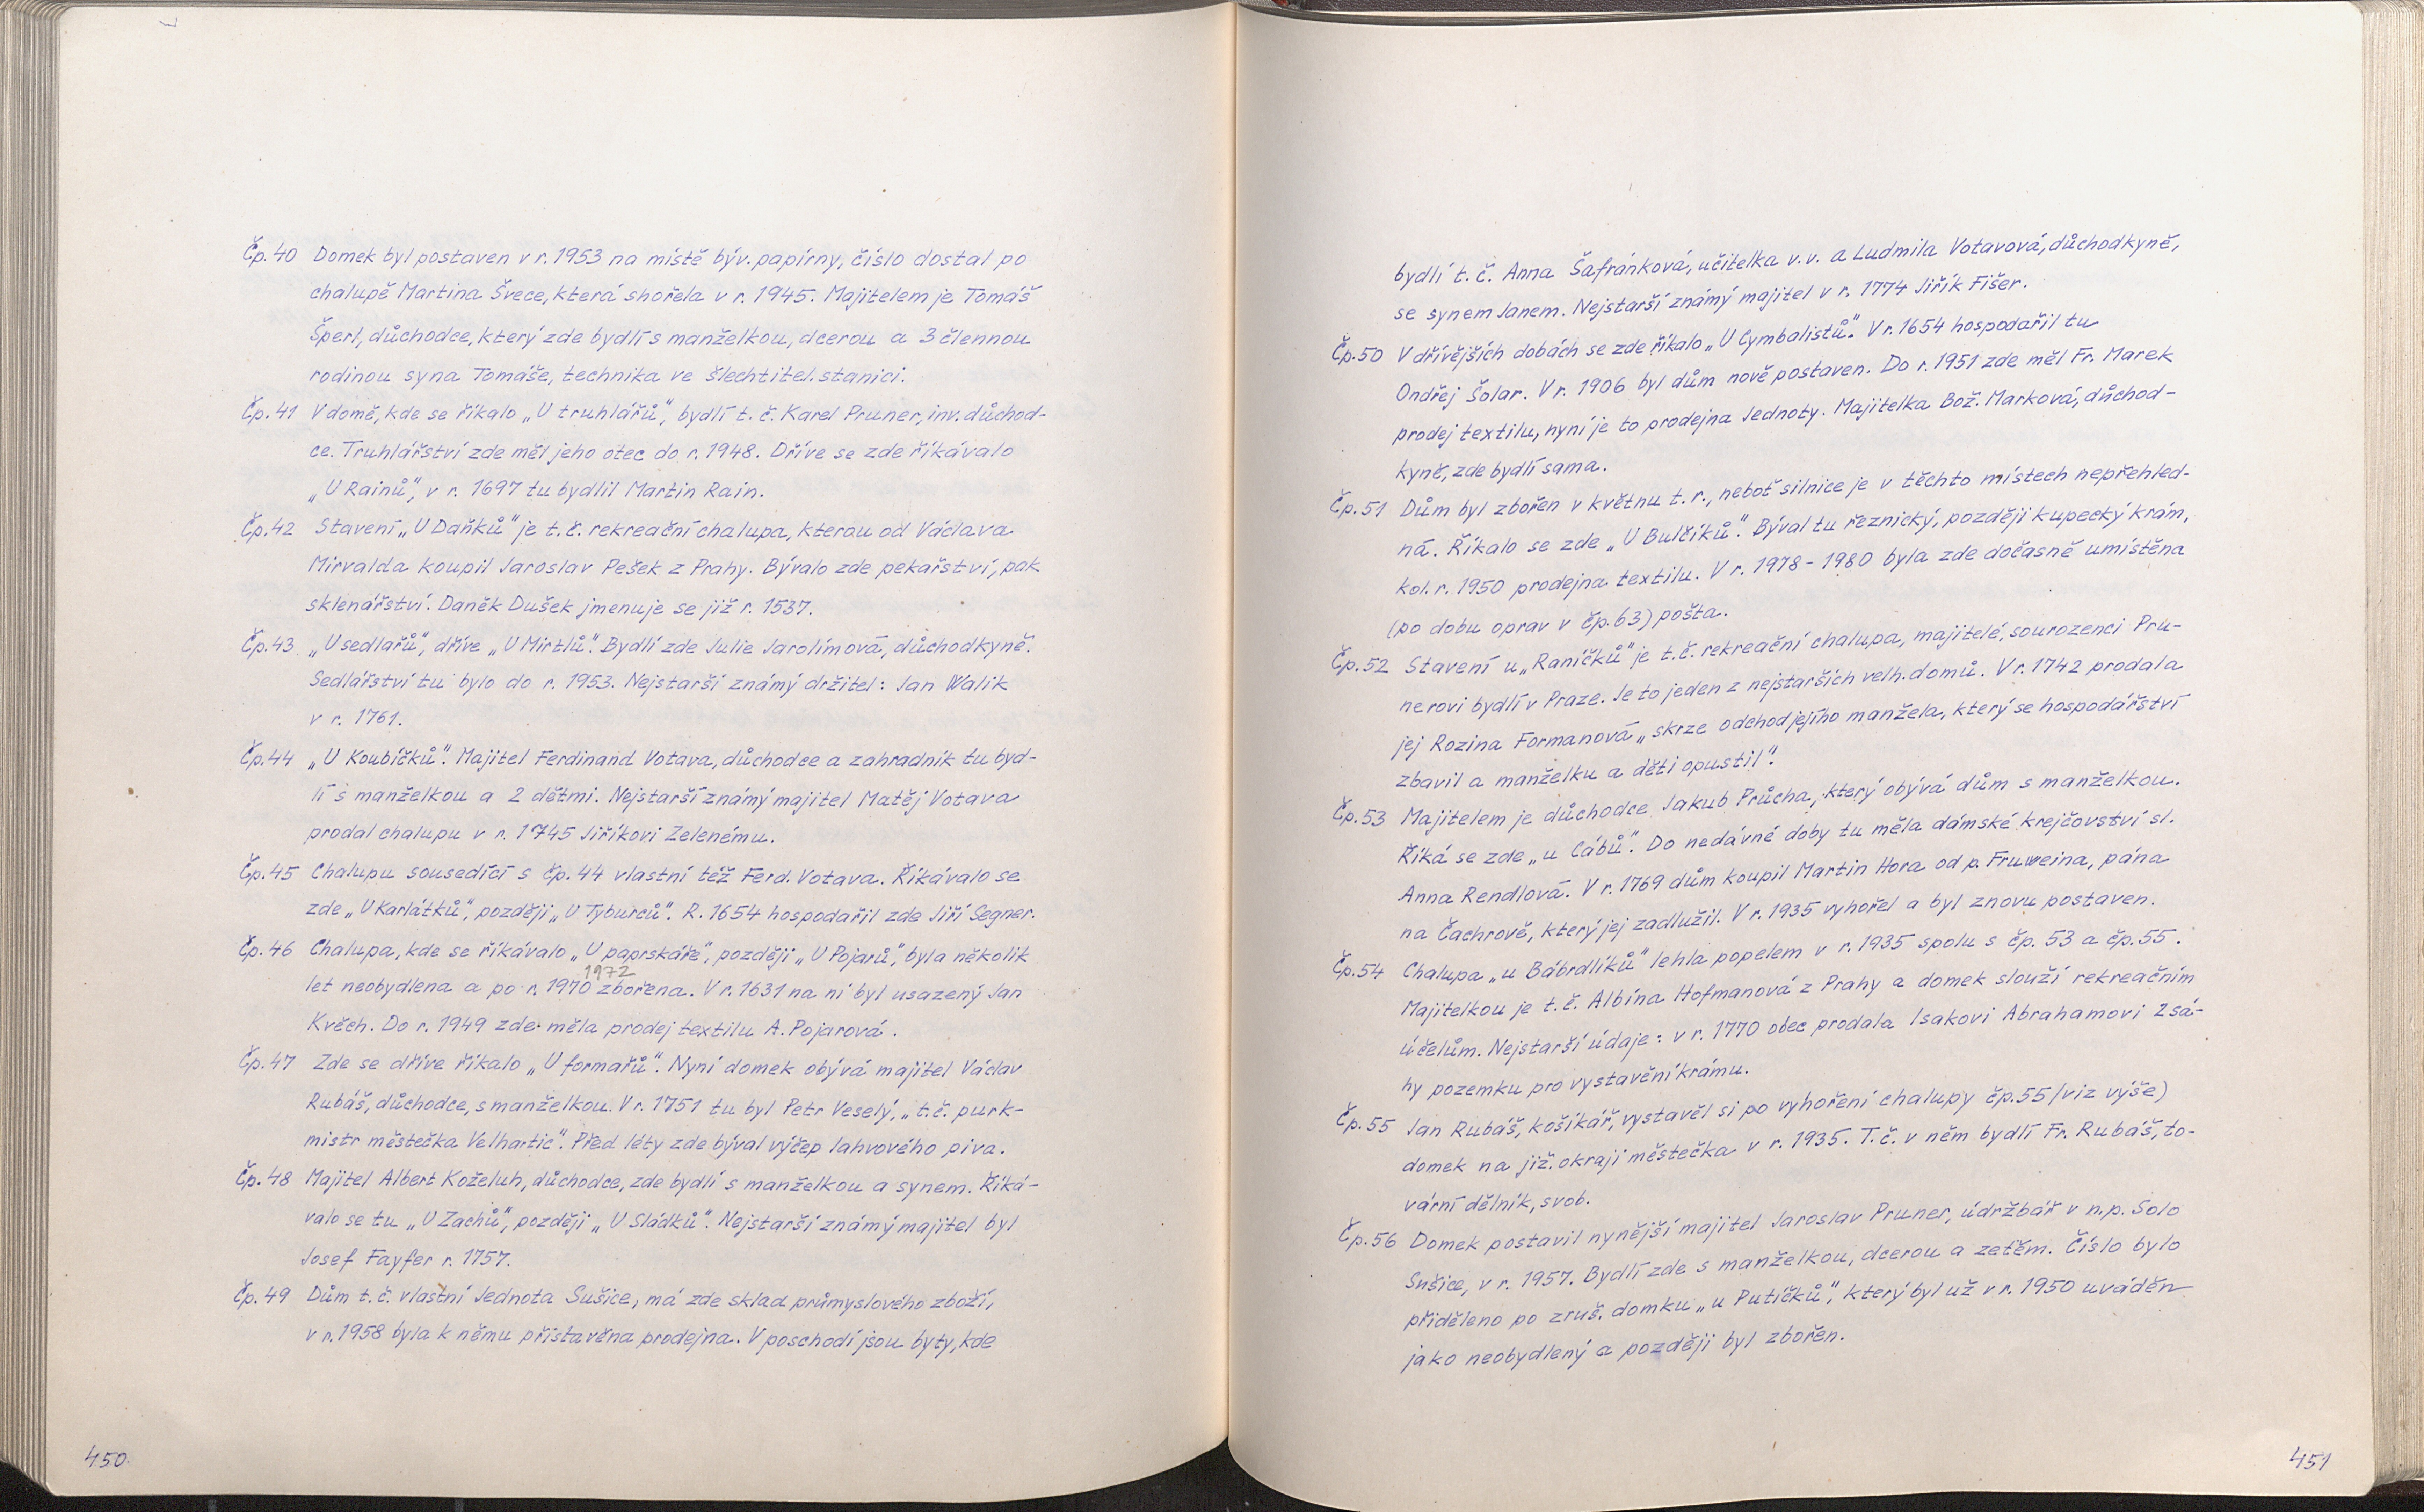 Čp. 40 Domek byl postaven v r. 1953 na místě býv. papírny, číslo dostal po
chalupě Martina Švece, která shořela v r. 1945. Majitelem je Tomáš
Šperl, důchodce, který zde bydlí s manželkou, dcerou a 3 člennou
rodinou syna Tomáše, technika ve šlechtitel. stanici.
Čp. 41 V domě, kde se říkalo „U truhlářů", bydlí t. č. Karel Pruner, inv. důchod-
ce. Truhlářství zde měl jeho otec do r. 1948. Dříve se zde říkávalo
„U Rainů", v r. 1697 tu bydlil Martin Rain.
Čp. 42 Stavení „U Daňků" je t. č. rekreační chalupa, kterou od Václava
Mirvalda koupil Jaroslav Pešek z Prahy. Bývalo zde pekařství, pak
sklenářství. Daněk Dušek jmenuje se již r. 1537.
Čp. 43 „U sedlařů", dříve „U Mirtlů". Bydlí zde Julie Jarolímová, důchodkyně.
Sedlářství tu bylo do r. 1953. Nejstarší známý držitel: Jan Walik
v r. 1761.
Čp. 44 „U Koubíčků". Majitel Ferdinand Votava, důchodce a zahradník tu byd-
lí s manželkou a 2 dětmi. Nejstarší známý majitel Matěj Votava
prodal chalupu v r. 1745 Jiříkovi Zelenému.
Čp. 45 Chalupu sousedící s čp. 44 vlastní též Ferd. Votava. Říkávalo se
zde „U Karlátků", později „U Tyburců". R. 1654 hospodařil zde Jiří Segner.
Čp. 46 Chalupa, kde se říkávalo „U paprskáře", později „U Pojarů", byla několik
1972
let neobydlena a po r. 1970 zbořena. V r. 1631 na ní byl usazený Jan
Kvěch. Do r. 1949 zde měla prodej textilu A. Pojarová.
Čp. 47 Zde se dříve říkalo „U formařů". Nyní domek obývá majitel Václav
Rubáš, důchodce, s manželkou. V r. 1751 tu byl Petr Veselý, „t. č. purk-
mistr městečka Velhartic". Před léty zde býval výčep lahvového piva.
Čp. 48 Majitel Albert Koželuh, důchodce, zde bydlí s manželkou a synem. Říká-
valo se tu „U Zachů", později „U Sládků". Nejstarší známý majitel byl
Josef Fayfer r. 1757.
Čp. 49 Dům t. č. vlastní Jednota Sušice, má zde sklad průmyslového zboží,
v r. 1958 byla k němu přistavěna prodejna. V poschodí jsou byty, kde
450
bydlí t. č. Anna Šafránková, učitelka v. v. a Ludmila Votavová, důchodkyně,
se synem Janem. Nejstarší známý majitel v r. 1774 Jiřík Fišer.
Čp. 50 V dřívějších dobách se zde říkalo „U Cymbalistů". V r. 1654 hospodařil tu
Ondřej Šolar. V r. 1906 byl dům nově postaven. Do r. 1951 zde měl Fr. Marek
prodej textilu, nyní je to prodejna Jednoty. Majitelka Bož. Marková, důchod-
kyně, zde bydlí sama.
Čp. 51 Dům byl zbořen v květnu t. r., neboť silnice je v těchto místech nepřehled-
ná. Říkalo se zde „U Bulčíků". Býval tu řeznický, později kupecký krám,
kol. r. 1950 prodejna textilu. V r. 1978 - 1980 byla zde dočasně umístěna
(po dobu oprav v čp. 63) pošta.
Čp. 52 Stavení u „Raníčků" je t. č. rekreační chalupa, majitelé, sourozenci Pru-
nerovi bydlí v Praze. Je to jeden z nejstarších velh. domů. V r. 1742 prodala
jej Rozina Formanová „skrze odchod jejího manžela, který se hospodářství
zbavil a manželku a děti opustil".
Čp. 53 Majitelem je důchodce Jakub Průcha, který obývá dům s manželkou.
Říká se zde „u Cábů". Do nedávné doby tu měla dámské krejčovství sl.
Anna Rendlová. V r. 1769 dům koupil Martin Hora od p. Fruweina, pána
na Čachrově, který jej zadlužil. V r. 1935 vyhořel a byl znovu postaven.
Čp. 54 Chalupa „u Bábrdlíků" lehla popelem v r. 1935 spolu s čp. 53 a čp. 55.
Majitelkou je t. č. Albína Hofmanová z Prahy a domek slouží rekreačním
účelům. Nejstarší údaje: v r. 1770 obec prodala Isakovi Abrahamovi 2 sá-
hy pozemku pro vystavění krámu.
Čp. 55 Jan Rubáš, košíkář, vystavěl si po vyhoření chalupy čp. 55 /viz výše)
domek na již. okraji městečka v r. 1935. T. č. v něm bydlí Fr. Rubáš, to-
vární dělník, svob.
Čp. 56 Domek postavil nynější majitel Jaroslav Pruner, údržbář v n. p. Solo
Sušice, v r. 1957. Bydlí zde s manželkou, dcerou a zetěm. Číslo bylo
přiděleno po zruš. domku „u Putíčků", který byl už v r. 1950 uváděn
jako neobydlený a později byl zbořen.
451